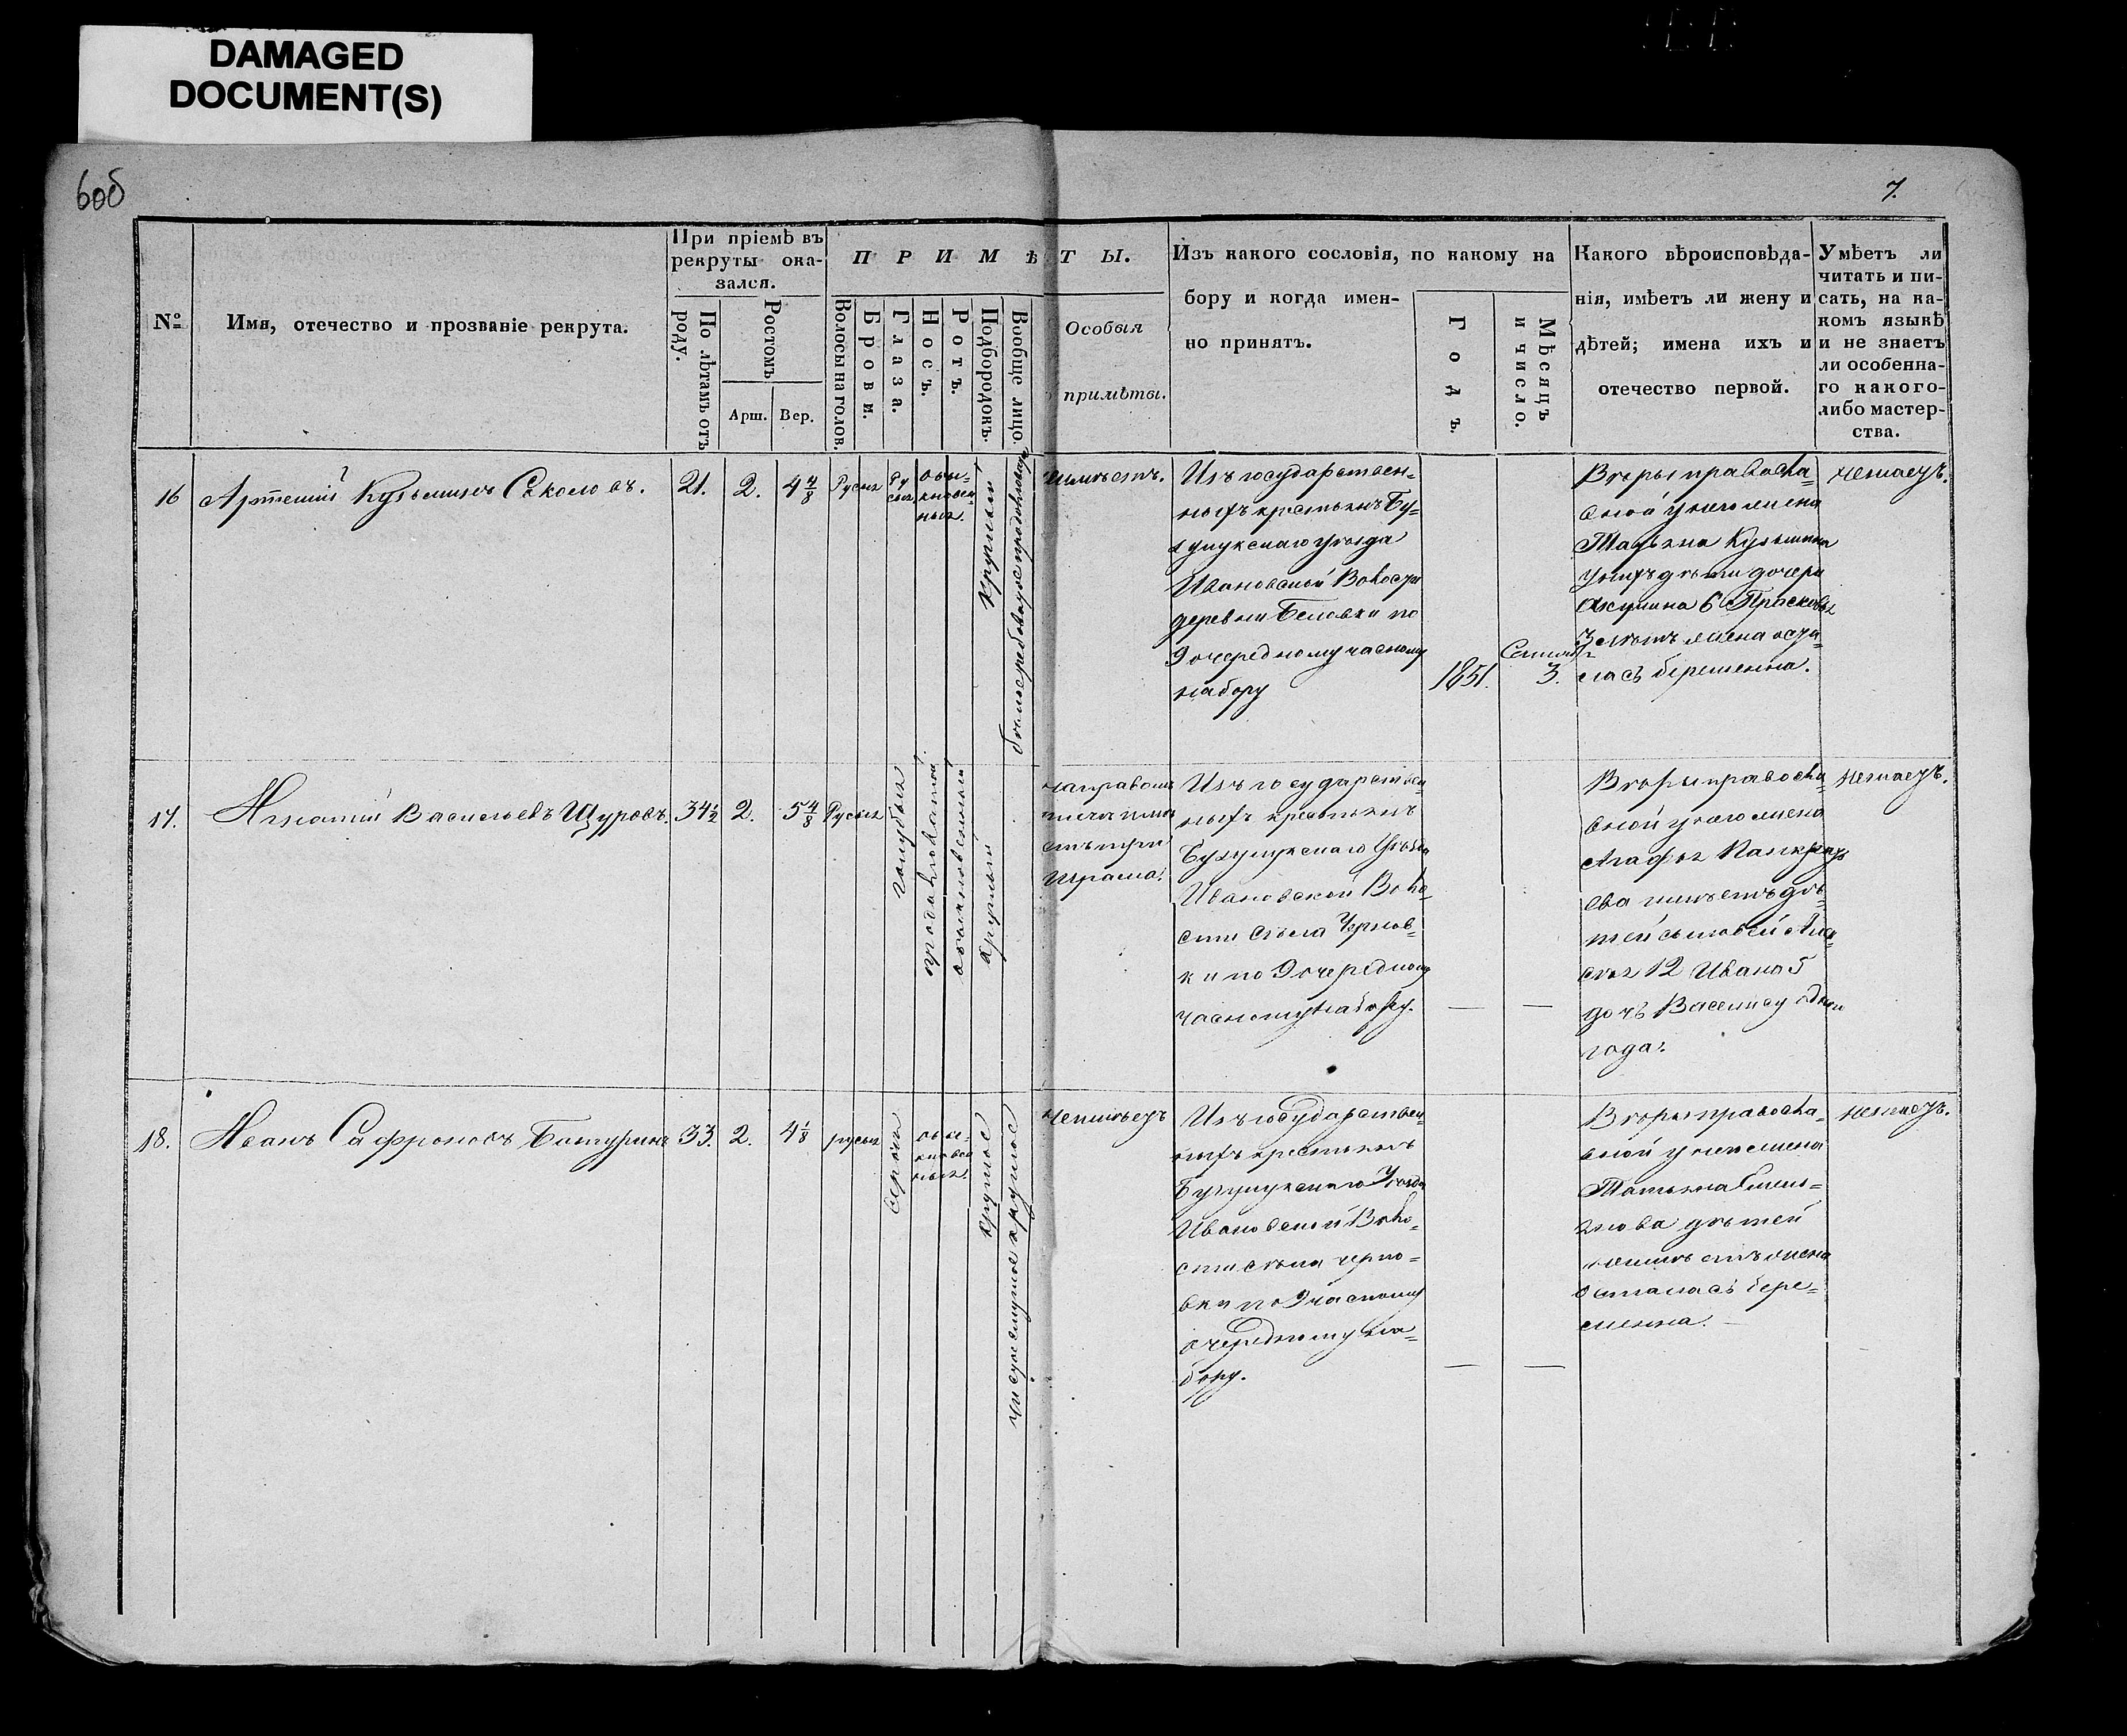 DAMAGED
DOCUMENT(S)
6об
7.
№
Имя, отечество и прозваніе рекрута.
При пріемѣ въ
рекруты ока-
зался.
По лѣтамъ отъ
роду.
Ростомъ
Арш.
Вер.
ПРИМѢТЫ.
Волосы на голов.
Брови.
Глаза.
Носъ.
Ротъ.
Подбородокъ.
Вообще лицо.
Особыя
примѣты.
Изъ какого сословія, по какому на
бору и когда имен-
но принятъ.
Годъ.
Мѣсяцъ
и число.
Какого вѣроисповѣда-
нія, имѣетъ ли жену и
дѣтей; имена ихъ и
отечество первой.
Умѣетъ ли
читать и пи-
сать, на ка-
комъ языкѣ
и не знаетъ
ли особенна-
го какого-
либо мастер-
ства.
16
Артемій Кузьминъ Соколовъ.
21.
2.
4 4/8
Русыя
Ру
сыя
обы-
кновен-
ныя.
круглый
неимѣетъ.
Изъ государствен-
ныхъ крестьянъ Бу-
гулукскаго уѣзда
Ивановской Волости
деревни Беловки по
9 очередному часному
набору
1851.
3.
Вѣры правосла=
вной у него жена
Кузьмина
у нихъ дѣти дочери
Акулина 6 Прасковья
3 лѣтъ жена оста=
лась беременна.
незнаетъ.
17.
Игнатій Васильевъ Щуровъ.
34 1/2
2.
5 4/8
Русыя
голубыя
продолговатой
обыкновенный
круглый
на правомъ
шрама.
Изъ государствен
ныхъ крестьянъ
Бугулукскаго Уѣзда
Ивановской Воло=
сти Сѣла Чернов=
ки по 9 очередному
часному набору.
—
—
Вѣры правосла=
вной у него жена
Агафья Панкрать
ева имѣетъ дѣ=
тей сыновей
12 Ивана 5
дочь Василису одного
года.
незнаетъ.
18.
Иванъ Сафроновъ Батуринъ
33.
2.
4 1/8
русыя
серыя
обы-
кновен
ныя.
круглое
чистое смуглое круглое
неимѣетъ
Изъ государствен=
ныхъ крестьянъ
Бугулукскаго Уѣзда
Ивановской Воло=
сти сѣла черно=
вки по 9 часному
очередному на=
бору.
—
—
Вѣры правосла=
вной у него жена
Татьяна Емель=
янова дѣтей
неимѣетъ жена
осталась бере=
менна.
незнаетъ.